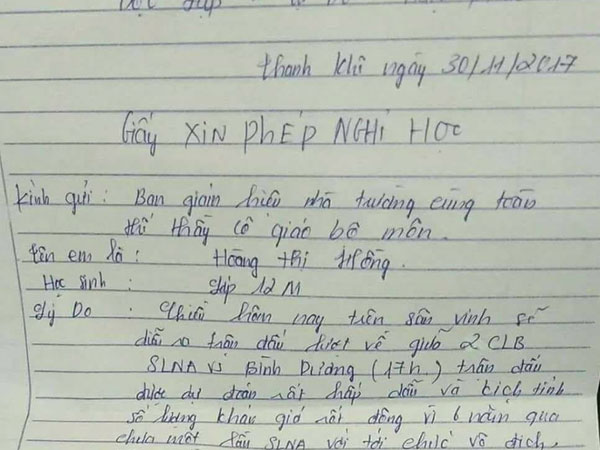 Thanh Khê ngày 30/11/2017
Giấy XIN PHÉP NGHỈ HỌC
Kính gửi : Ban giám hiệu nhà trường cùng toàn
thể thầy cô giáo bộ môn.
Tên em là : Hoàng Thị Hồng.
Học sinh : Lớp 12 M
Lý Do : Chiều hôm nay trên sân vinh sẽ
diễn ra trận đấu lượt về giữa 2 CLB
SLNA vs Bình Dương (17h.) trận đấu
được dự đoán rất hấp dẫn và kịch tính
số lượng khán giả rất đông vì 6 năm qua
chưa một lần SLNA với tới chức vô địch.